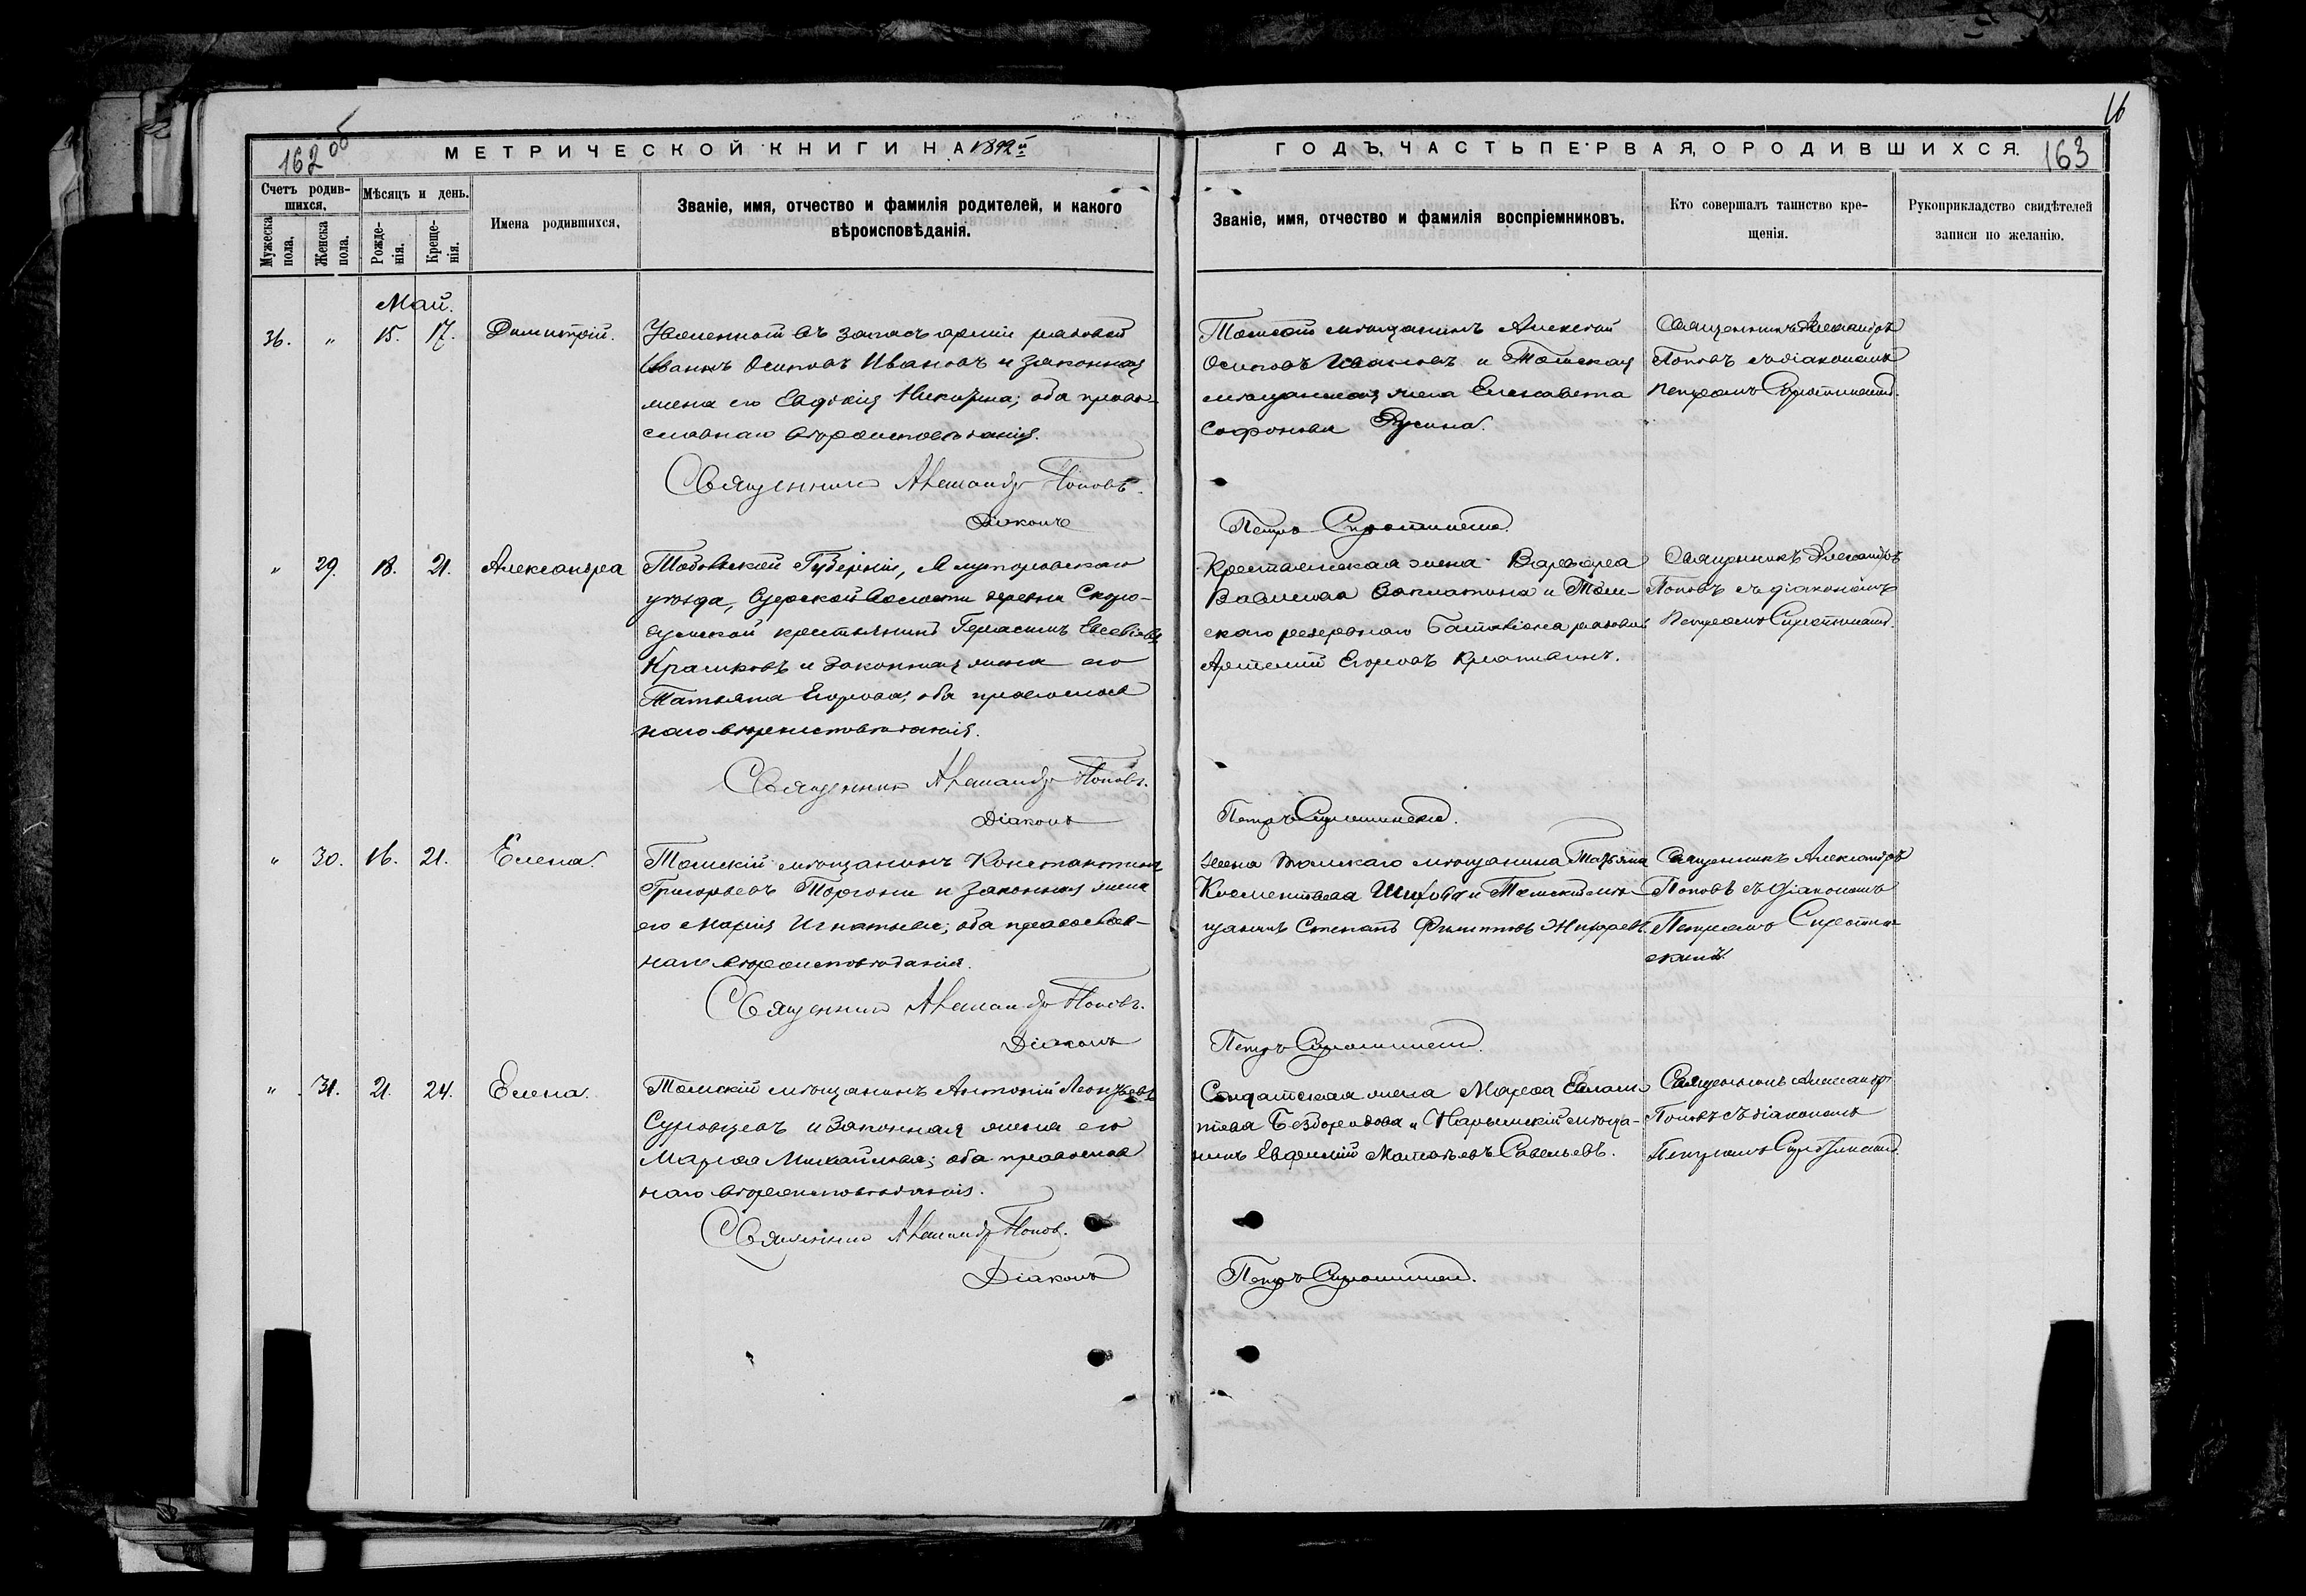 16
162 об
МЕТРИЧЕСКОЙ КНИГИ НА 1892й
ГОДЪ, ЧАСТЬ ПЕРВАЯ, О РОДИВШИХСЯ.
163
Счетъ родив-
шихся.
Мужеска
пола.
Женска
пола.
Мѣсяцъ и день.
Рожде-
нія.
Креще-
нія.
Имена родившихся.
Званіе, имя, отчество и фамилія родителей, и какого
вѣроисповѣданія.
Званіе, имя, отчество и фамилія воспріемниковъ.
Кто совершалъ таинство кре-
щенія.
Рукоприкладство свидѣтелей
записи по желанію.
Май.
36. " 15. 17. Димитрій.
Уволенный въ запасъ арміи рядовой
Иванъ Осиповъ Ивановъ и законная
жена его Евдокія; оба право-
славнаго вѣроисповѣданія.
Томскій мѣщанинъ Алексѣй
Осиповъ Ивановъ и Томская
мѣщанская жена Елисавета
Софонова Русина.
Священникъ Александръ
Поповъ съ діакономъ
Петромъ
Священникъ Александръ Поповъ.
Діаконъ
Петръ
" 29. 18. 21. Александра
Тобольской Губерніи, Ялуторовскаго
уѣзда, волости деревни Скоро-
думской крестьянинъ Герасимъ
и законная жена его
Татьяна Егорова; оба православ
наго вѣроисповѣданія.
Крестьянская жена Варвара
Васильева и Том-
скаго резервнаго Баталіона рядовой
Артемій Егоровъ
Священникъ Александръ
Поповъ съ діакономъ
Петромъ
Священникъ Александръ Поповъ.
Діаконъ
Петръ
" 30. 16. 21. Елена.
Томскій мѣщанинъ Константинъ
Григорьевъ и законная жена
его Марія Игнатьева; оба православ-
наго вѣроисповѣданія.
Жена томскаго мѣщанина Татьяна
и Томскій мѣ-
щанинъ Степанъ Филиповъ
Священникъ Александръ
Поповъ съ діакономъ
Петромъ
Священникъ Александръ Поповъ.
Діаконъ
Петръ
" 31. 21. 24. Елена.
Томскій мѣщанинъ Антоній Леонтьевъ
Суровцевъ и законная жена его
Марѳа Михайлова; оба православ
наго вѣроисповѣданія.
Солдатская жена Марѳа
и Нарымскій мѣща-
нинъ Евфимій Матвѣевъ Савельевъ.
Священникъ Александръ
Поповъ съ діакономъ
Петромъ
Священникъ Александръ Поповъ.
Діаконъ
Петръ